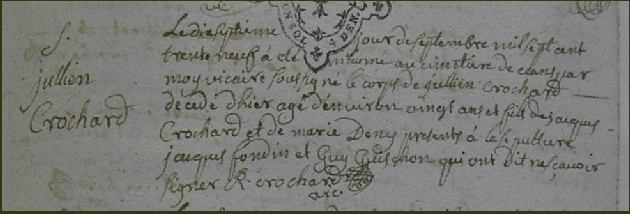 S.
jullien
Crochard
Le dix septieme jour de septembre mil sept cent
trente neuf à eté inhumé au cimetiere de ceans par
moy vicaire soussigné le corps de jullien crochard
décédé d'hier agé d'environ vingt ans et fils de jacques
Crochard et de marie Denys presents à la sepulture
jacques fondin et Guy Guischon qui ont dit ne sçavoir
signer R. crochard
vic.